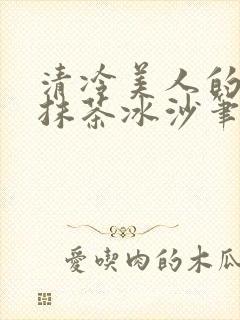 清冷美人的
抹茶冰沙筆
愛喫肉的木瓜